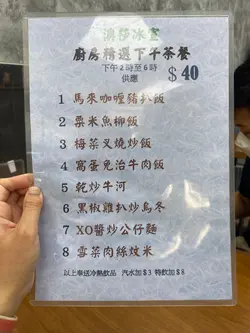 濤莎冰室
廚房精選下午茶餐
下午2時至6時
供應
$40
1 馬來咖喱豬扒飯
2 粟米魚柳飯
3 梅菜叉燒炒飯
4 窩蛋免治牛肉飯
5 乾炒牛河
6 黑椒雞扒炒烏冬
7 XO醬炒公仔麵
8 雪菜肉絲炆米
以上奉送冷熱飲品 汽水加$3 特飲加$8